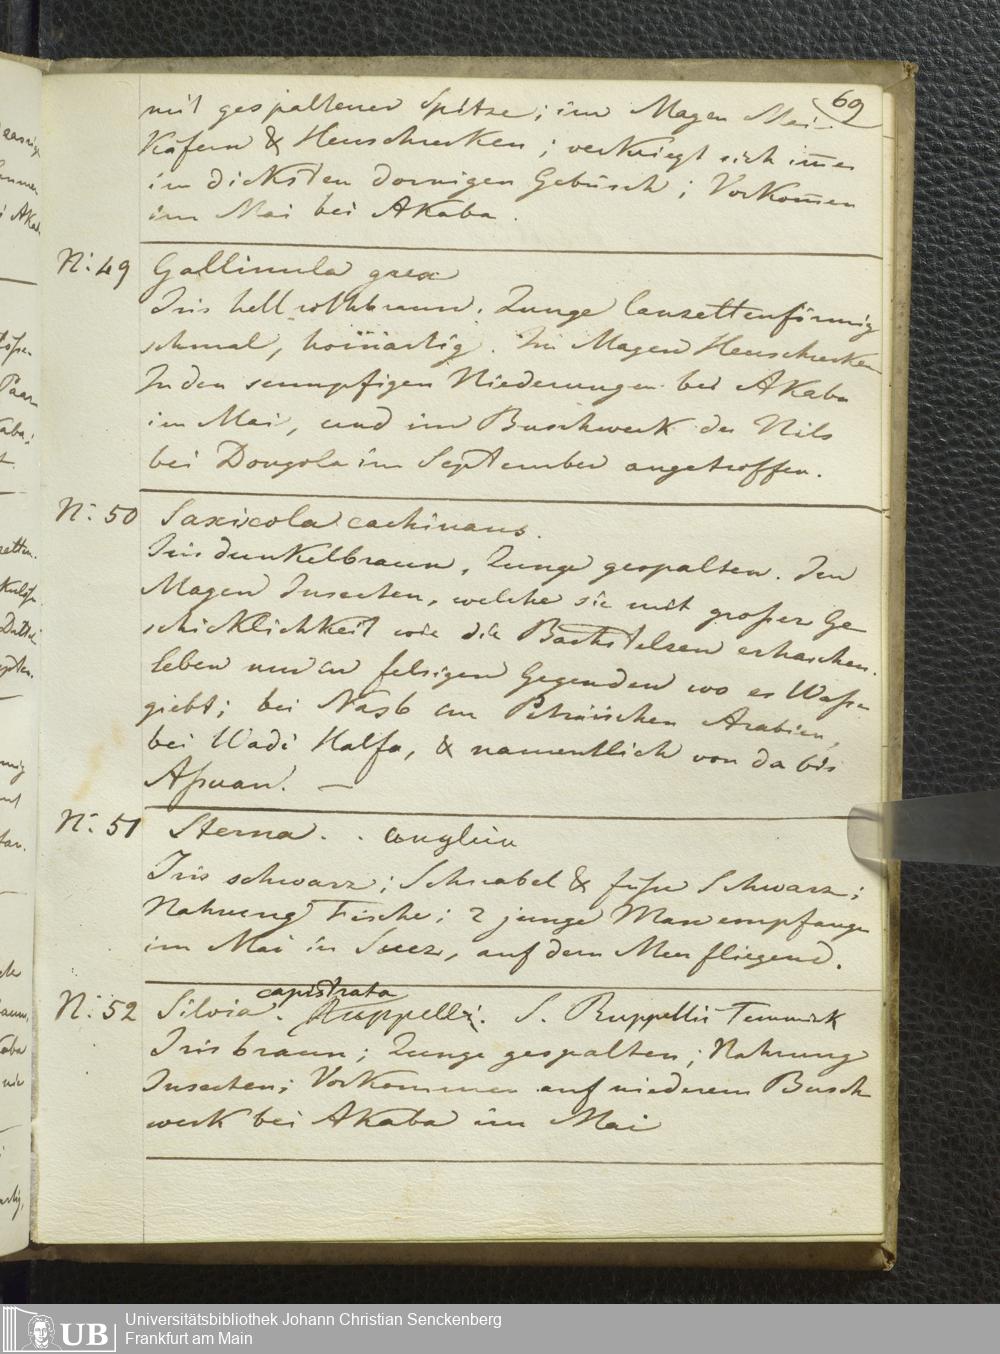 69
mit gespaltener Spitze; im Magen Mai-
Käfern & Heuschrecken; verkriegt sich im̅er
im dicksten dornigen Gebüsch; Vorkom̅en
im Mai bei Akaba.
N: 49 Gallinula grex
Iris hell rothbraun. Zunge lanzettenförmig
schmal, hornartig. Im Magen Heuschrecken
In den sumpfigen Niederungen bei Akaba
im Mai, und im Buschwerk des Nils
bei Dongola im September angetroffen.
N: 50 Saxicola cachinans.
Iris dunkelbraun, Zunge gespalten. Im
Magen Insecten, welche sie mit großer Ge
schicklichkeit wie die Bachstelzen erhaschen.
leben nur in felsigen Gegenden wo es Wasser
giebt; bei Nasb im Peträischen Arabien,
bei Wadi Halfa, & namentlich von da bis
Assuan. —
N: 51 Sterna . . anglica
Iris schwarz; Schnabel & füße Schwarz;
Nahrung Fische; 2 junge Man empfangen
im Mai in Suez, auf dem Meer fliegend.
capistrata
N: 52 Silvia . Ruppelli. S. Ruppellii Temmink
Iris braun; Zunge gespalten; Nahrung
Insecten; Vorkommen auf niederem Busch
werk bei Akaba im Mai
UB
Universitätsbibliothek Johann Christian Senckenberg
Frankfurt am Main